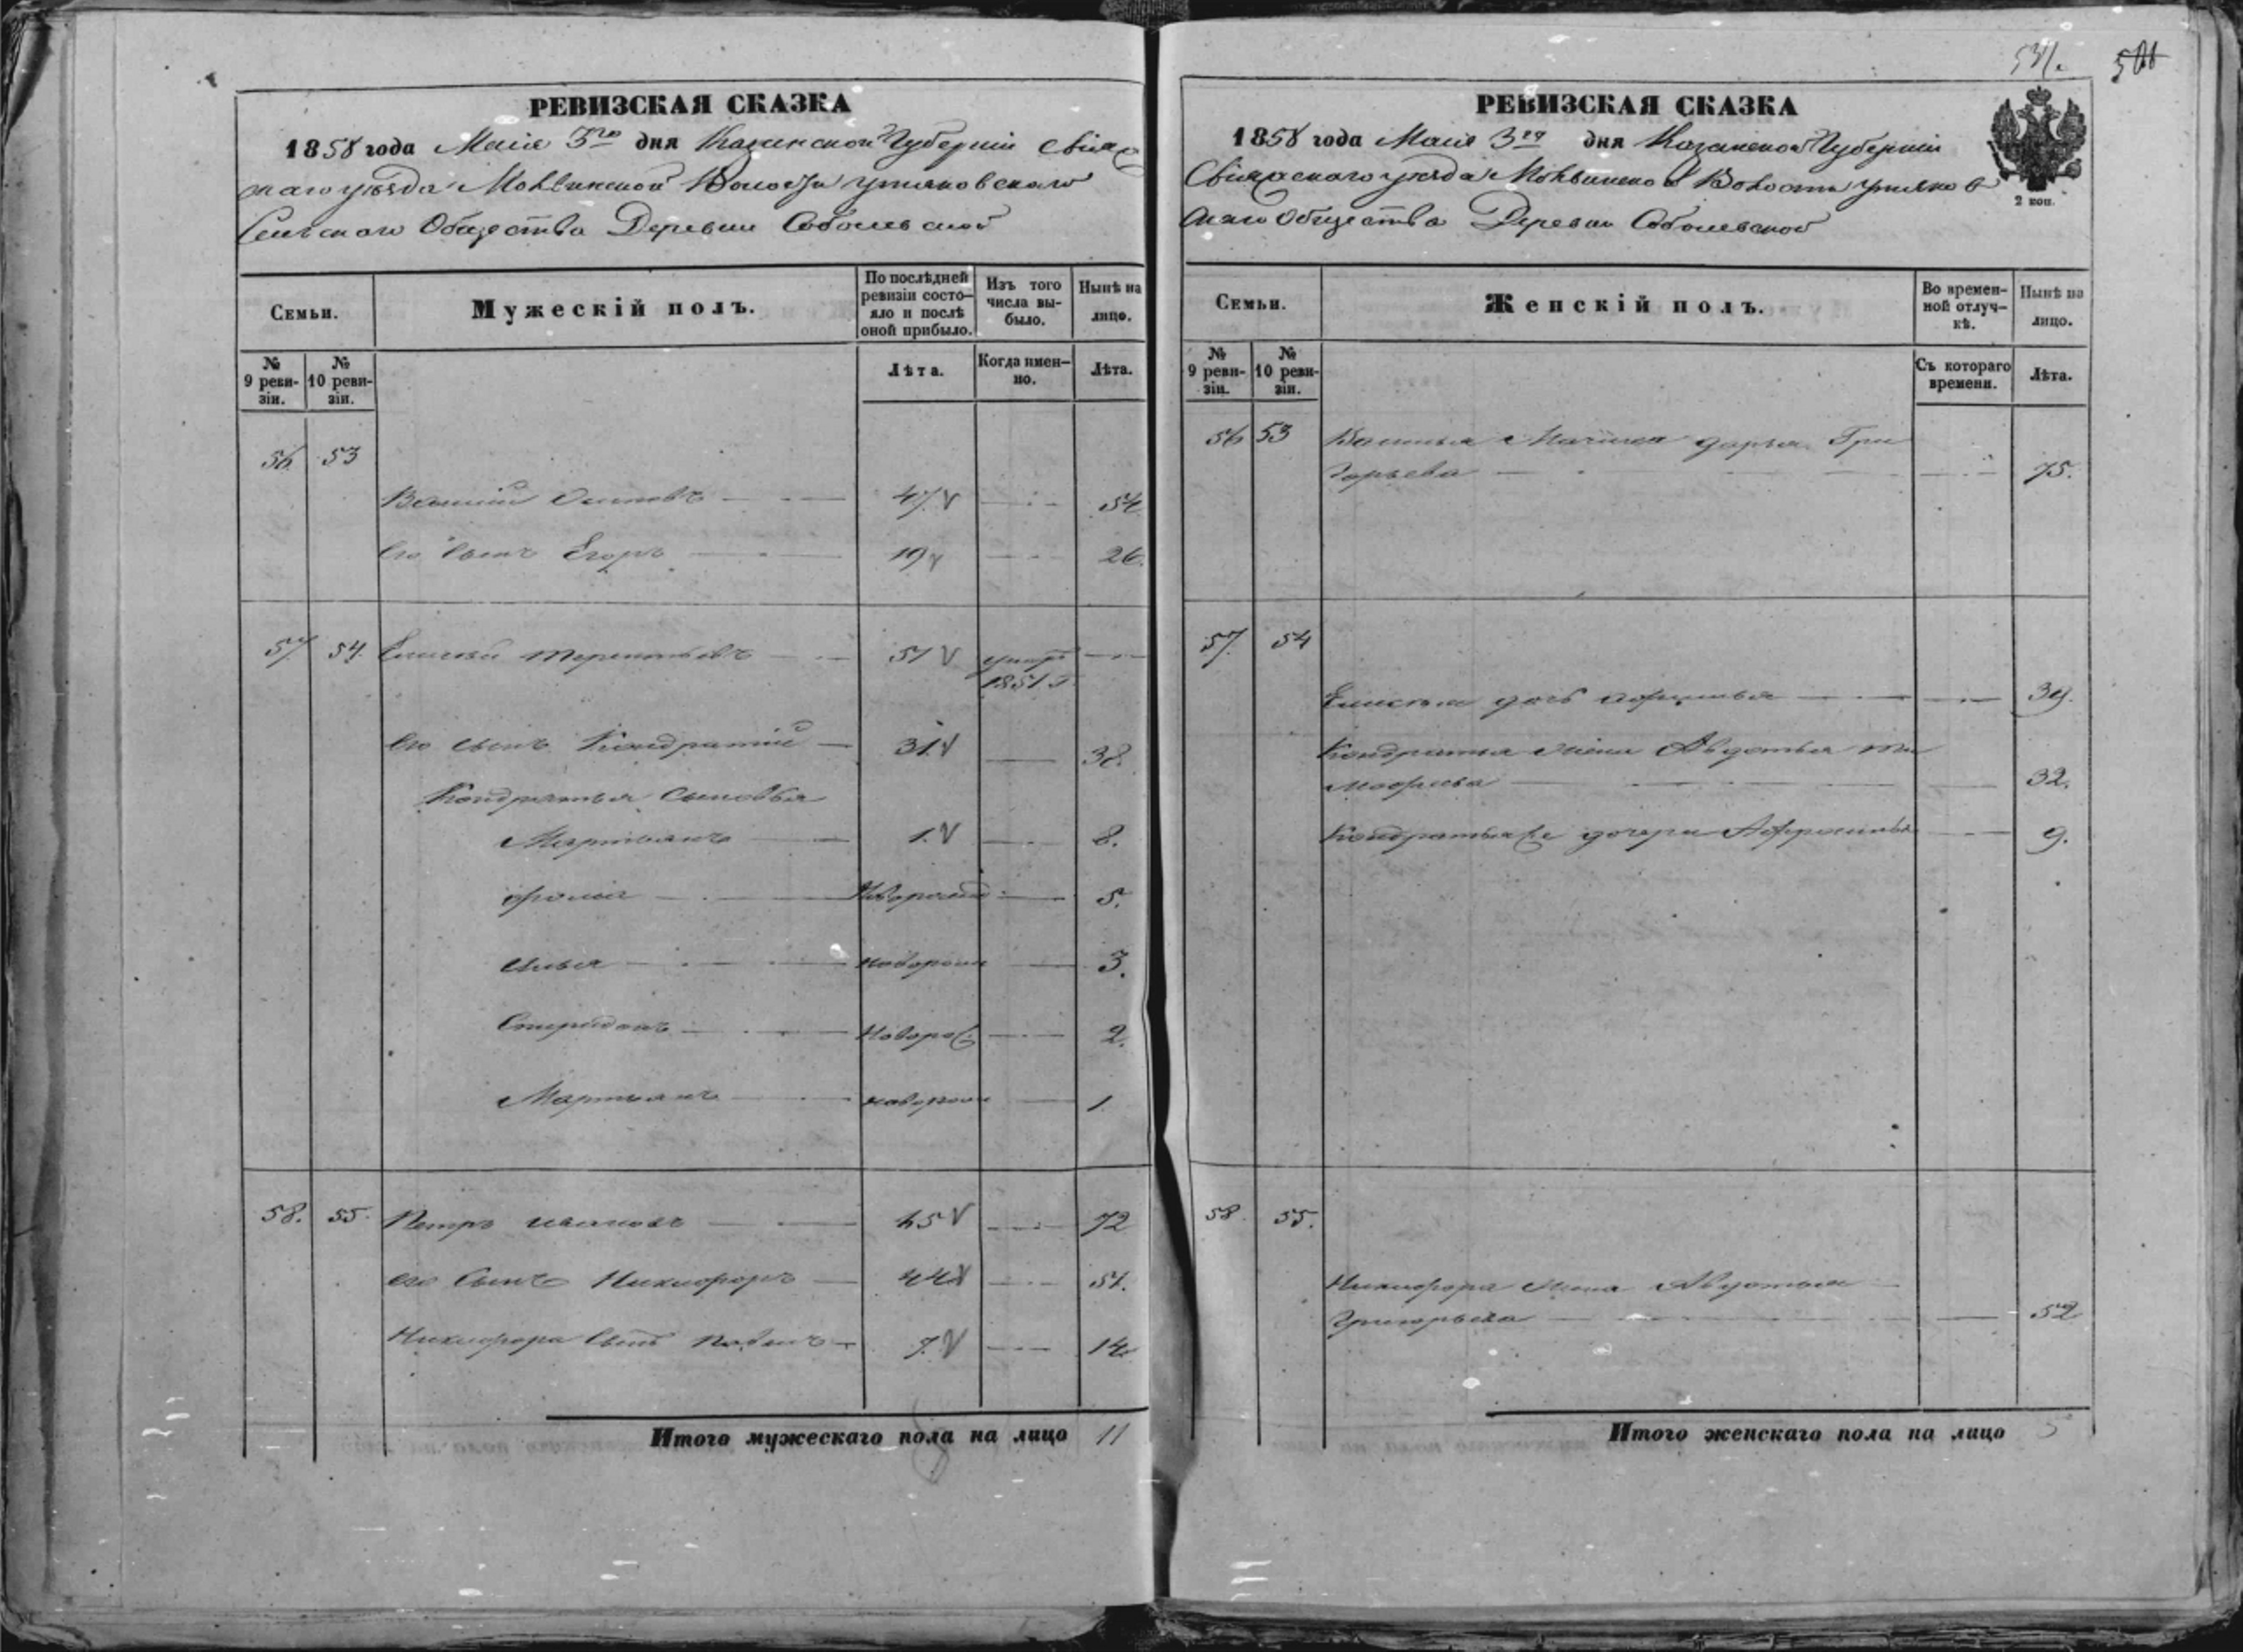 РЕВИЗСКАЯ СКАЗКА
1858 года Маія 3го дня Казанской Губерніи Свіяж
скаго уѣзда Моквинской Волости
Сельскаго Общества Деревни Соболевской
Семьи.
Мужескій полъ.
По послѣдней
ревизіи состо-
яло и послѣ
оной прибыло.
Изъ того
числа вы-
было.
Нынѣ на
лицо.
№
9 реви-
зіи.
№
10 реви-
зіи.
Лѣта.
Когда имен-
но.
Лѣта.
56 53
Василій Осиповъ 47 54
Его сынъ Егоръ 19 26.
57 54. Елисѣй Терентьевъ 51 умеръ
1851 г.
Его сынъ Кондратій 31 38.
Кондратья сыновья
Мартьянъ 1. 8.
Фрола 5.
Илья новорож 3.
Спиридонъ Новоро 2.
Мартьянъ новорож 1
58. 55. Петръ Ивановъ 65 72
его сынъ Никифоръ 44 51.
Никифора сынъ 7. 14
Итого мужескаго пола на лицо 11
531.
РЕВИЗСКАЯ СКАЗКА
1858 года Маія 3го дня Казанской Губерніи
Свіяжскаго уѣзда Моквинской Волости
скаго Общества Деревни Соболевской
2 коп.
Семьи.
Женскій полъ.
Во времен-
ной отлуч-
кѣ.
Нынѣ на
лицо.
№
9 реви-
зіи.
№
10 реви-
зіи.
Съ котораго
времени.
Лѣта.
56 53 Василья Дарья Гри
горьева 75.
57. 54
Елисѣя дочь
Кондратья жена Авдотья Ти
мофѣева 32.
Кондратья дочери Афросинья 9.
58 55.
Никифора жена Авдотья
Григорьева 52
Итого женскаго пола на лицо 5